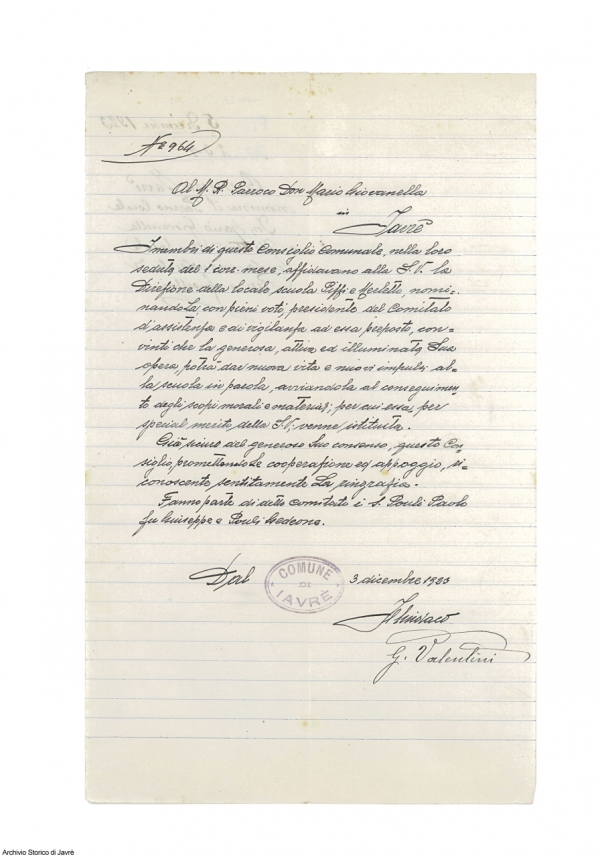 Nº 964
Al M. R. Parroco Don Mario Giovanella
in
Javrè
I membri di questo Consiglio Comunale, nella loro
seduta del 1 corr. mese, affidavano alla S. V. la
Direzione della locale scuola Pizzi e Merletti, nomi-
nandola, con pieni voti, presidente del Comitato
d'assistenza e di vigilanza ad essa preposto, con-
vinti che la generosa, attiva ed illuminata Sua
opera, potrà dar nuova vita e nuovi impulsi al-
la scuola in parola, avviandola al conseguimen-
to degli scopi morali e materiali, per cui essa, per
special merito della S. V. venne istituita.
Già sicuro del generoso Suo consenso, questo Con-
siglio, promettendole cooperazione ed appoggio, ri-
conoscente, sentitamente La ringrazia.
Fanno parte di detto Comitato i S. Pouli Paolo
fu Giuseppe e Pouli Gedeone.
Dal COMUNE DI IAVRÈ 3 dicembre 1923
Il Sindaco
G. Valentini
5 1923
Archivio Storico di Javrè